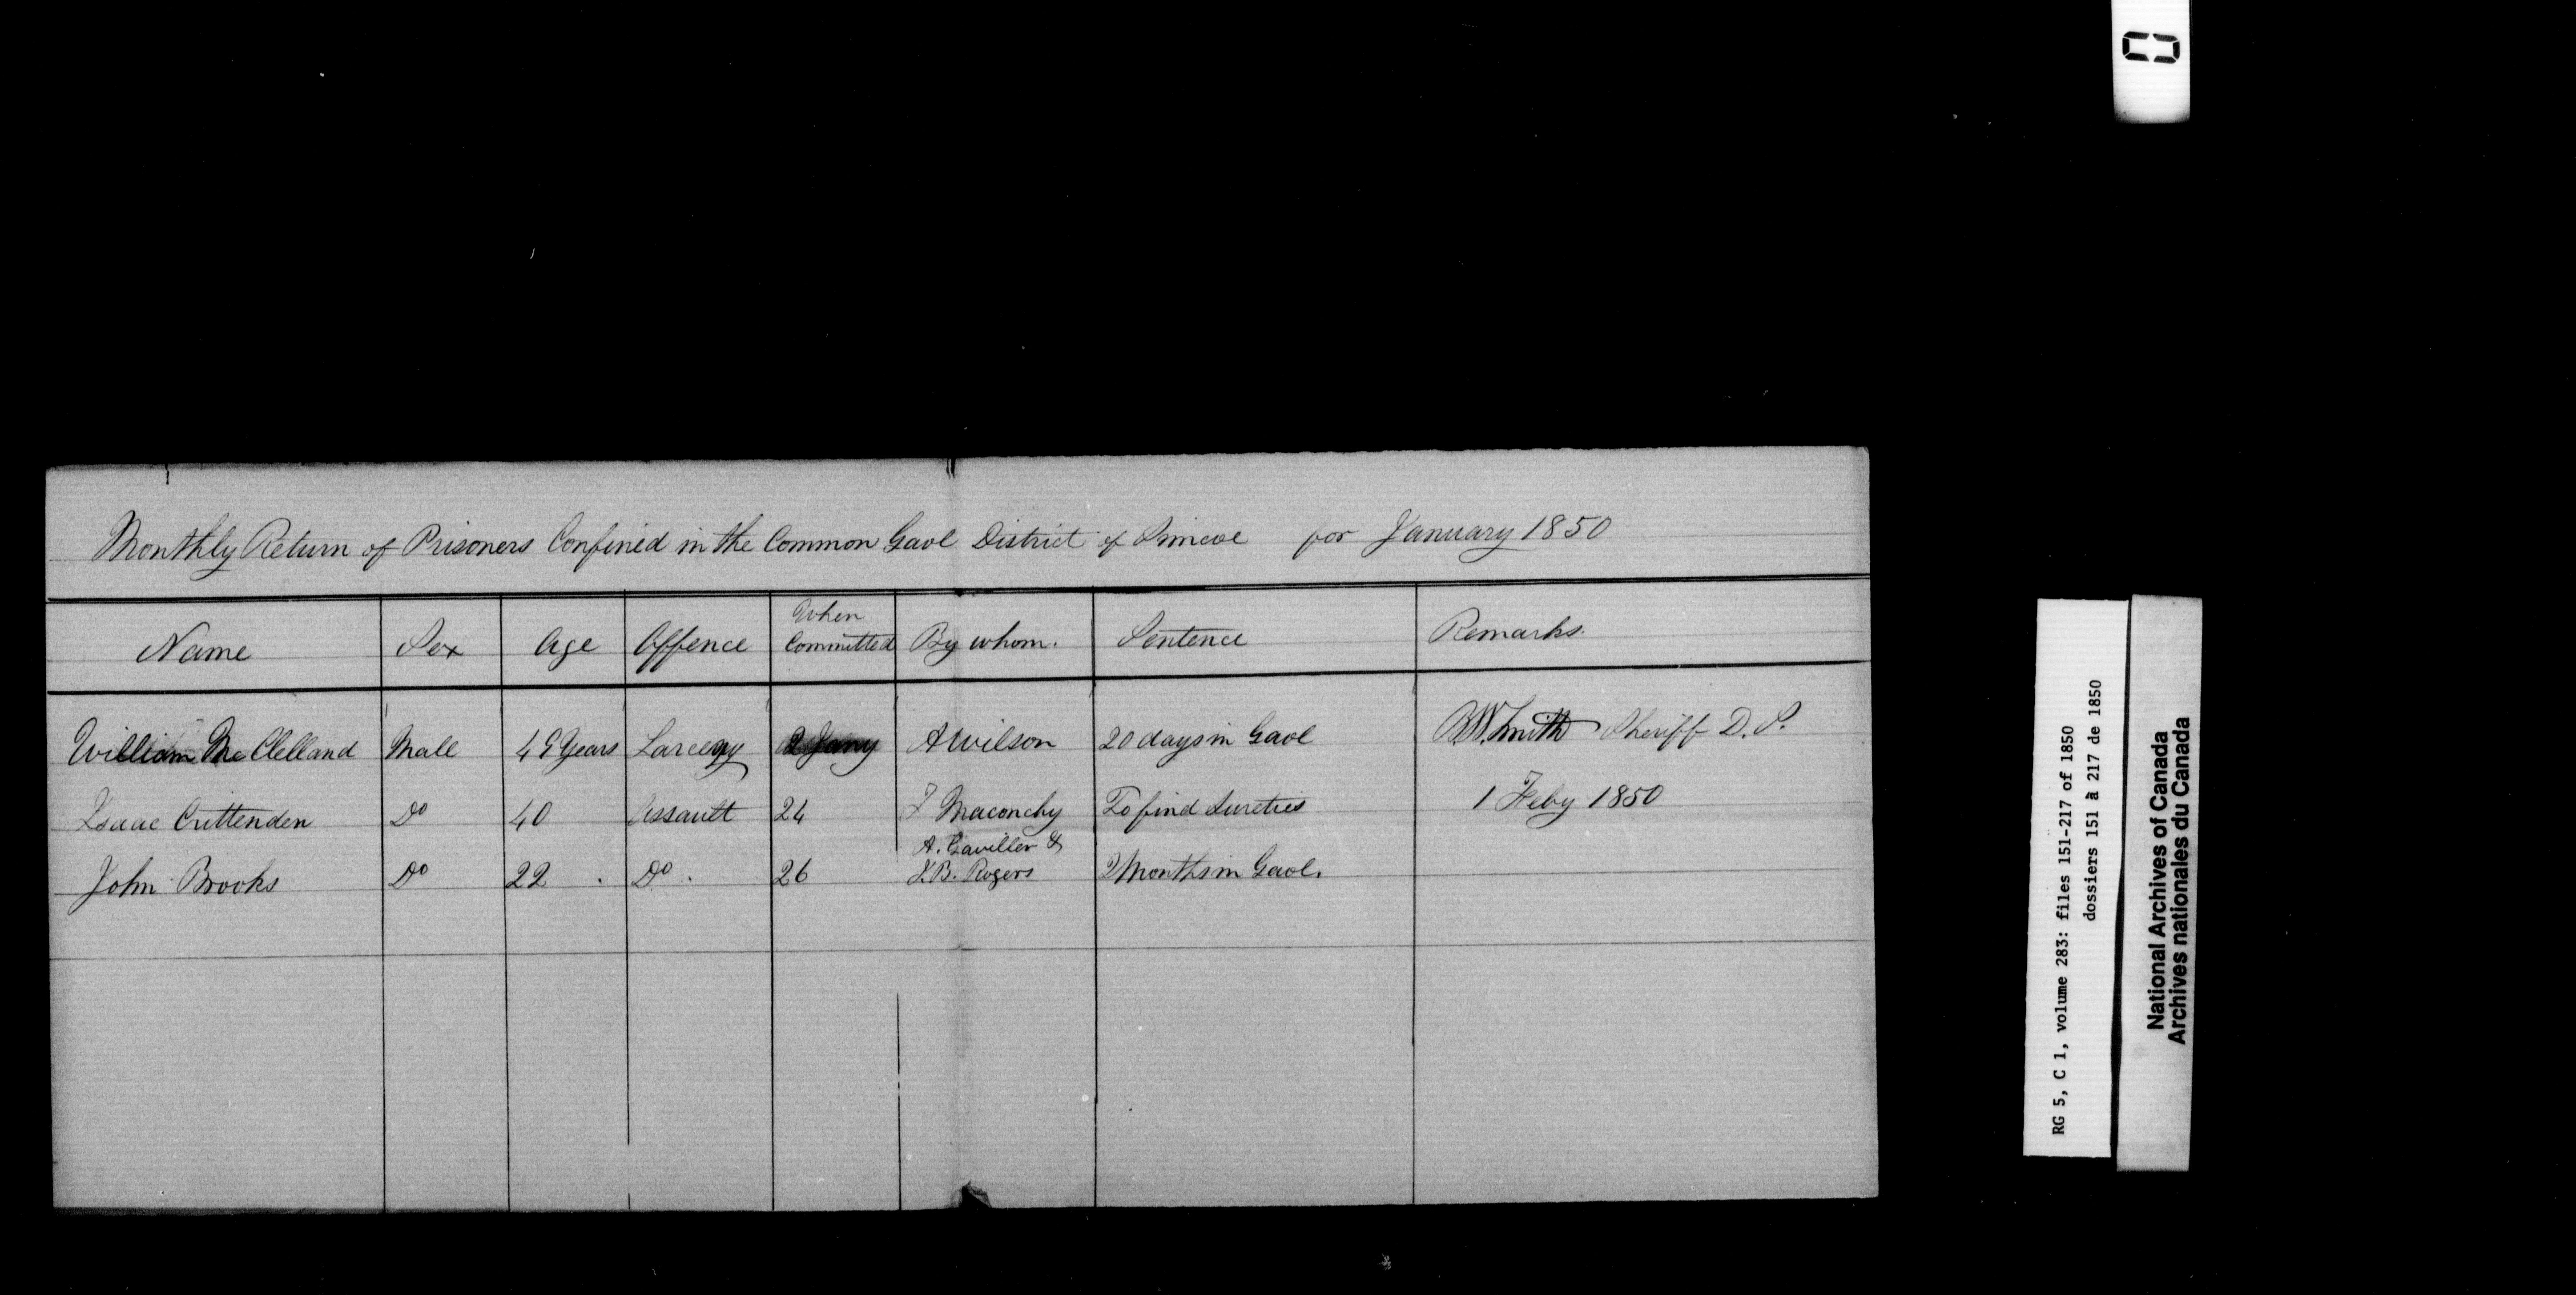 Monthly Return of Prisoners Confined in the Common Gaol District of Simcoe for January 1850
Name Sex Age Offence When Committed By whom. Sentence Remarks.
William McClelland Male 49 Years Larceny 2 Jany A Wilson 20 days in Gaol BW Smith Sheriff D. S.
Isaac Crittenden Do 40 Assault 24 Maconchy To find Sureties 1 Feby 1850
A. Gaviller &
John Brooks Do 22 Do. 26 J.B. Rogers 2 Months in Gaol.
RG 5, C 1, volume 283: files 151-217 of 1850
dossiers 151 à 217 de 1850
National Archives of Canada
Archives nationales du Canada